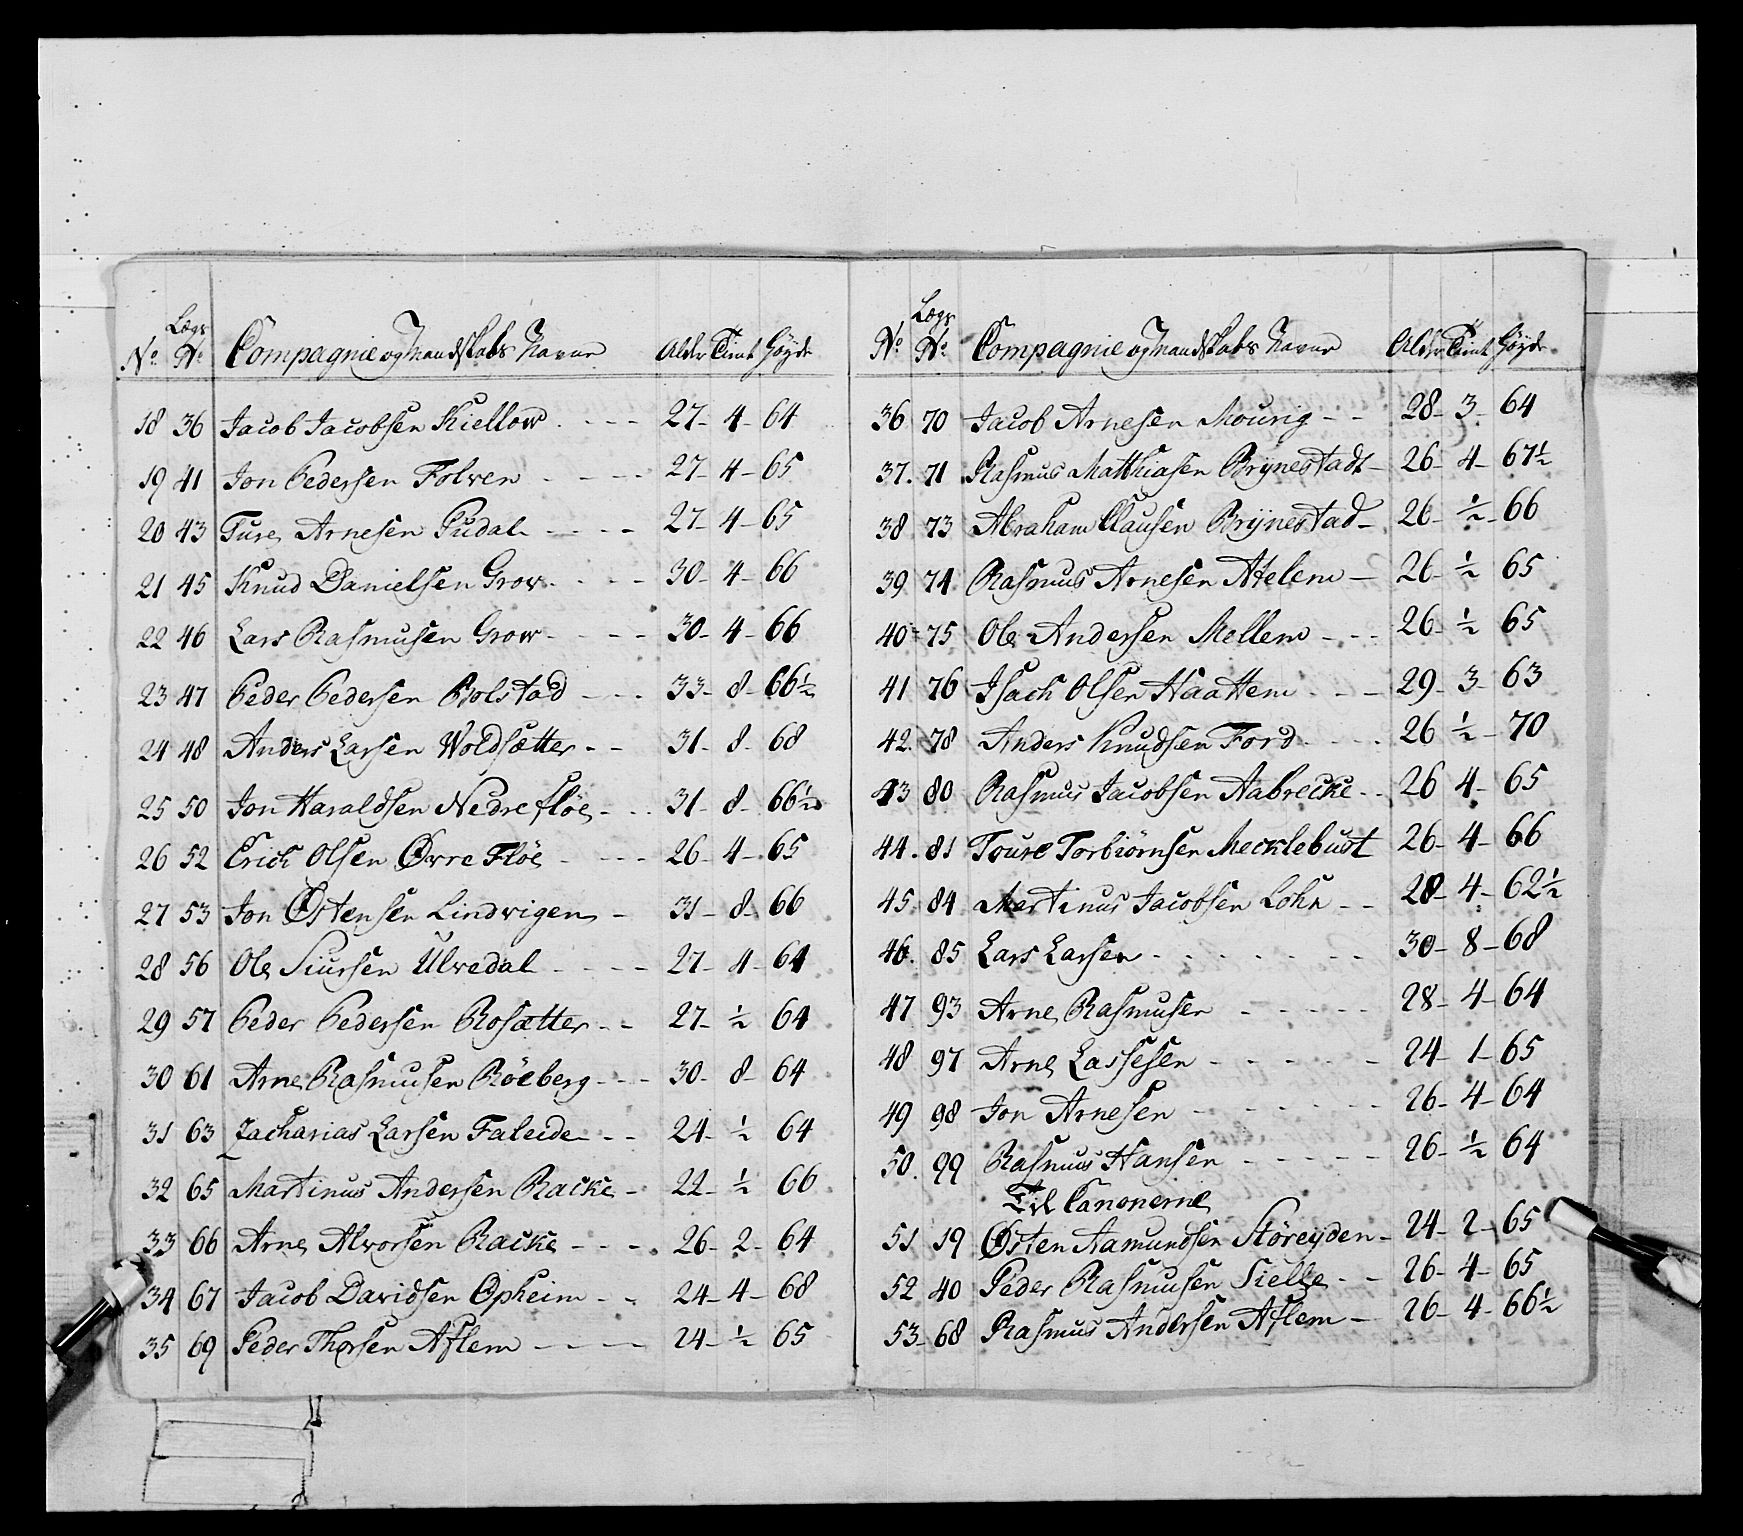 No. Lægs No. Compagnie og Mandskabs Navne Alder Tient Höyde
18 36 Jacob Jacobsen Kiellow . - - - 27 - 4 - 64
19 41 Jon Pedersen Folven - - - - 27 - 4 - 65
20 43 Ture Arnesen Pudal - - - - 27 - 4 - 65
21 45 Knud Danielsen Grow - - - - 30 - 4 - 66
22 46 Lars Rasmusen Grow - - - - 30 - 4 - 66
23 47 Peder Pedersen Bolstad - - - 33 - 8 - 66½
24 48 Anders Larsen Woldsætter - - 31 - 8 - 68
25 50 Jon Haraldsen Nedre flöe - - - 31 - 8 - 66½
26 52 Erich Olsen Øvre Flöe - - - - 26 - 4 - 65
27 53 Jon Østensen Lindvigen - 31 - 8 - 66
28 56 Ole Siursen Ulvedal - - - - 27 - 4 - 64
29 57 Peder Pedersen Rosætter - - 27 - ½ 64
30 61 Arne Rasmusen Röeberg - - - 30 - 8 - 64
31 63 Zacharias Larsen Faleide - - 24 - ½ 64
32 65 Martinus Andersen Racke - 22 - ½ 66
33 66 Arne Alvorsen Racke - - - - 26 - 2 - 64
34 67 Jacob Davidsen Opheim - - 24 - 4 - 68
35 69 Peder Thorsen Aflem - - - - 24 - ½ - 65
No. Lægs No. Compagnie og Mandskabs Navne Alder Tient Höyde
36 70 Jacob Arnesen Mourig - - 28 - 3 - 64
37. 71 Rasmus Matthiasen Brÿnestadt - 26 - 4 - 67½
38 73 Abraham Clausen Brÿnestad - 26 - ½ - 66
39 74 Rasmus Arnesen Atelem - 26 - ½ 65
40 - 75 Ole Andersen Mellem - - - 26 - ½ 65
41 76 Isach Olsen Haattem - - - 29 - 3 - 63
42. 78 Anders Knudsen Ford - - - - 26 ½ - 70
43 80 Rasmus Jacobsen Aabrecke - - 26 4 - 65
44. 81 Toure Torbiörnsen Mecklebust 26 - 4 - 66
45. 84 Martinus Jacobsen Lohn - - 28 - 4 - 62½
46. 85 Lars Larsen - - - - - - - 30 - 8 - 68
47 93 Arne Rasmusen - - - - - 28 - 4 - 64
48 97 Arne Lassesen - - - - - 24 - 1 - 65
49 98 Jon Arnesen - - - - - - 26 - 4 - 64
50. 99 Rasmus Hansen - - - - - 26 - ½ - 64
Til Canonerne
51 19 Østen Aamundsen Störeyden - 24 - 2 - 65
52 40 Peder Rasmusen Sielle - - 26 - 4 - 65
53 - 68 Rasmus Andersen Aflem - 26 - 4 - 66½